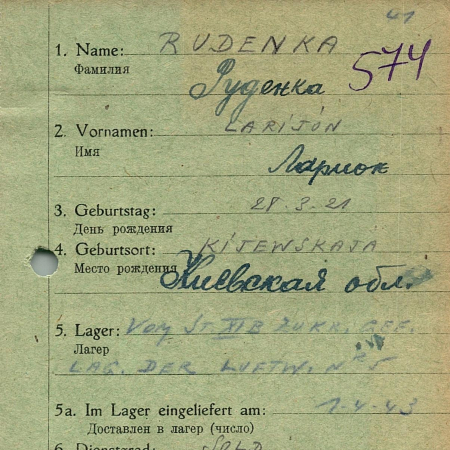 41
1. Name: RUDENKA
Фамилия
574
Руденка
2. Vornamen: LARIJÓN
Имя
Ларион
3. Geburtstag: 28.3.21
День рождения
4. Geburtsort: KIJEWSKAJA
Место рождения Киевская обл.
5. Lager: Vom St. XI B z. KR. GEF.
Лагер
LAG. DER LUFTW. NR 5
5a. Im Lager eingeliefert am: 1.4.43
Доставлен в лагер (число)
6. Dienstgrad: SOLD